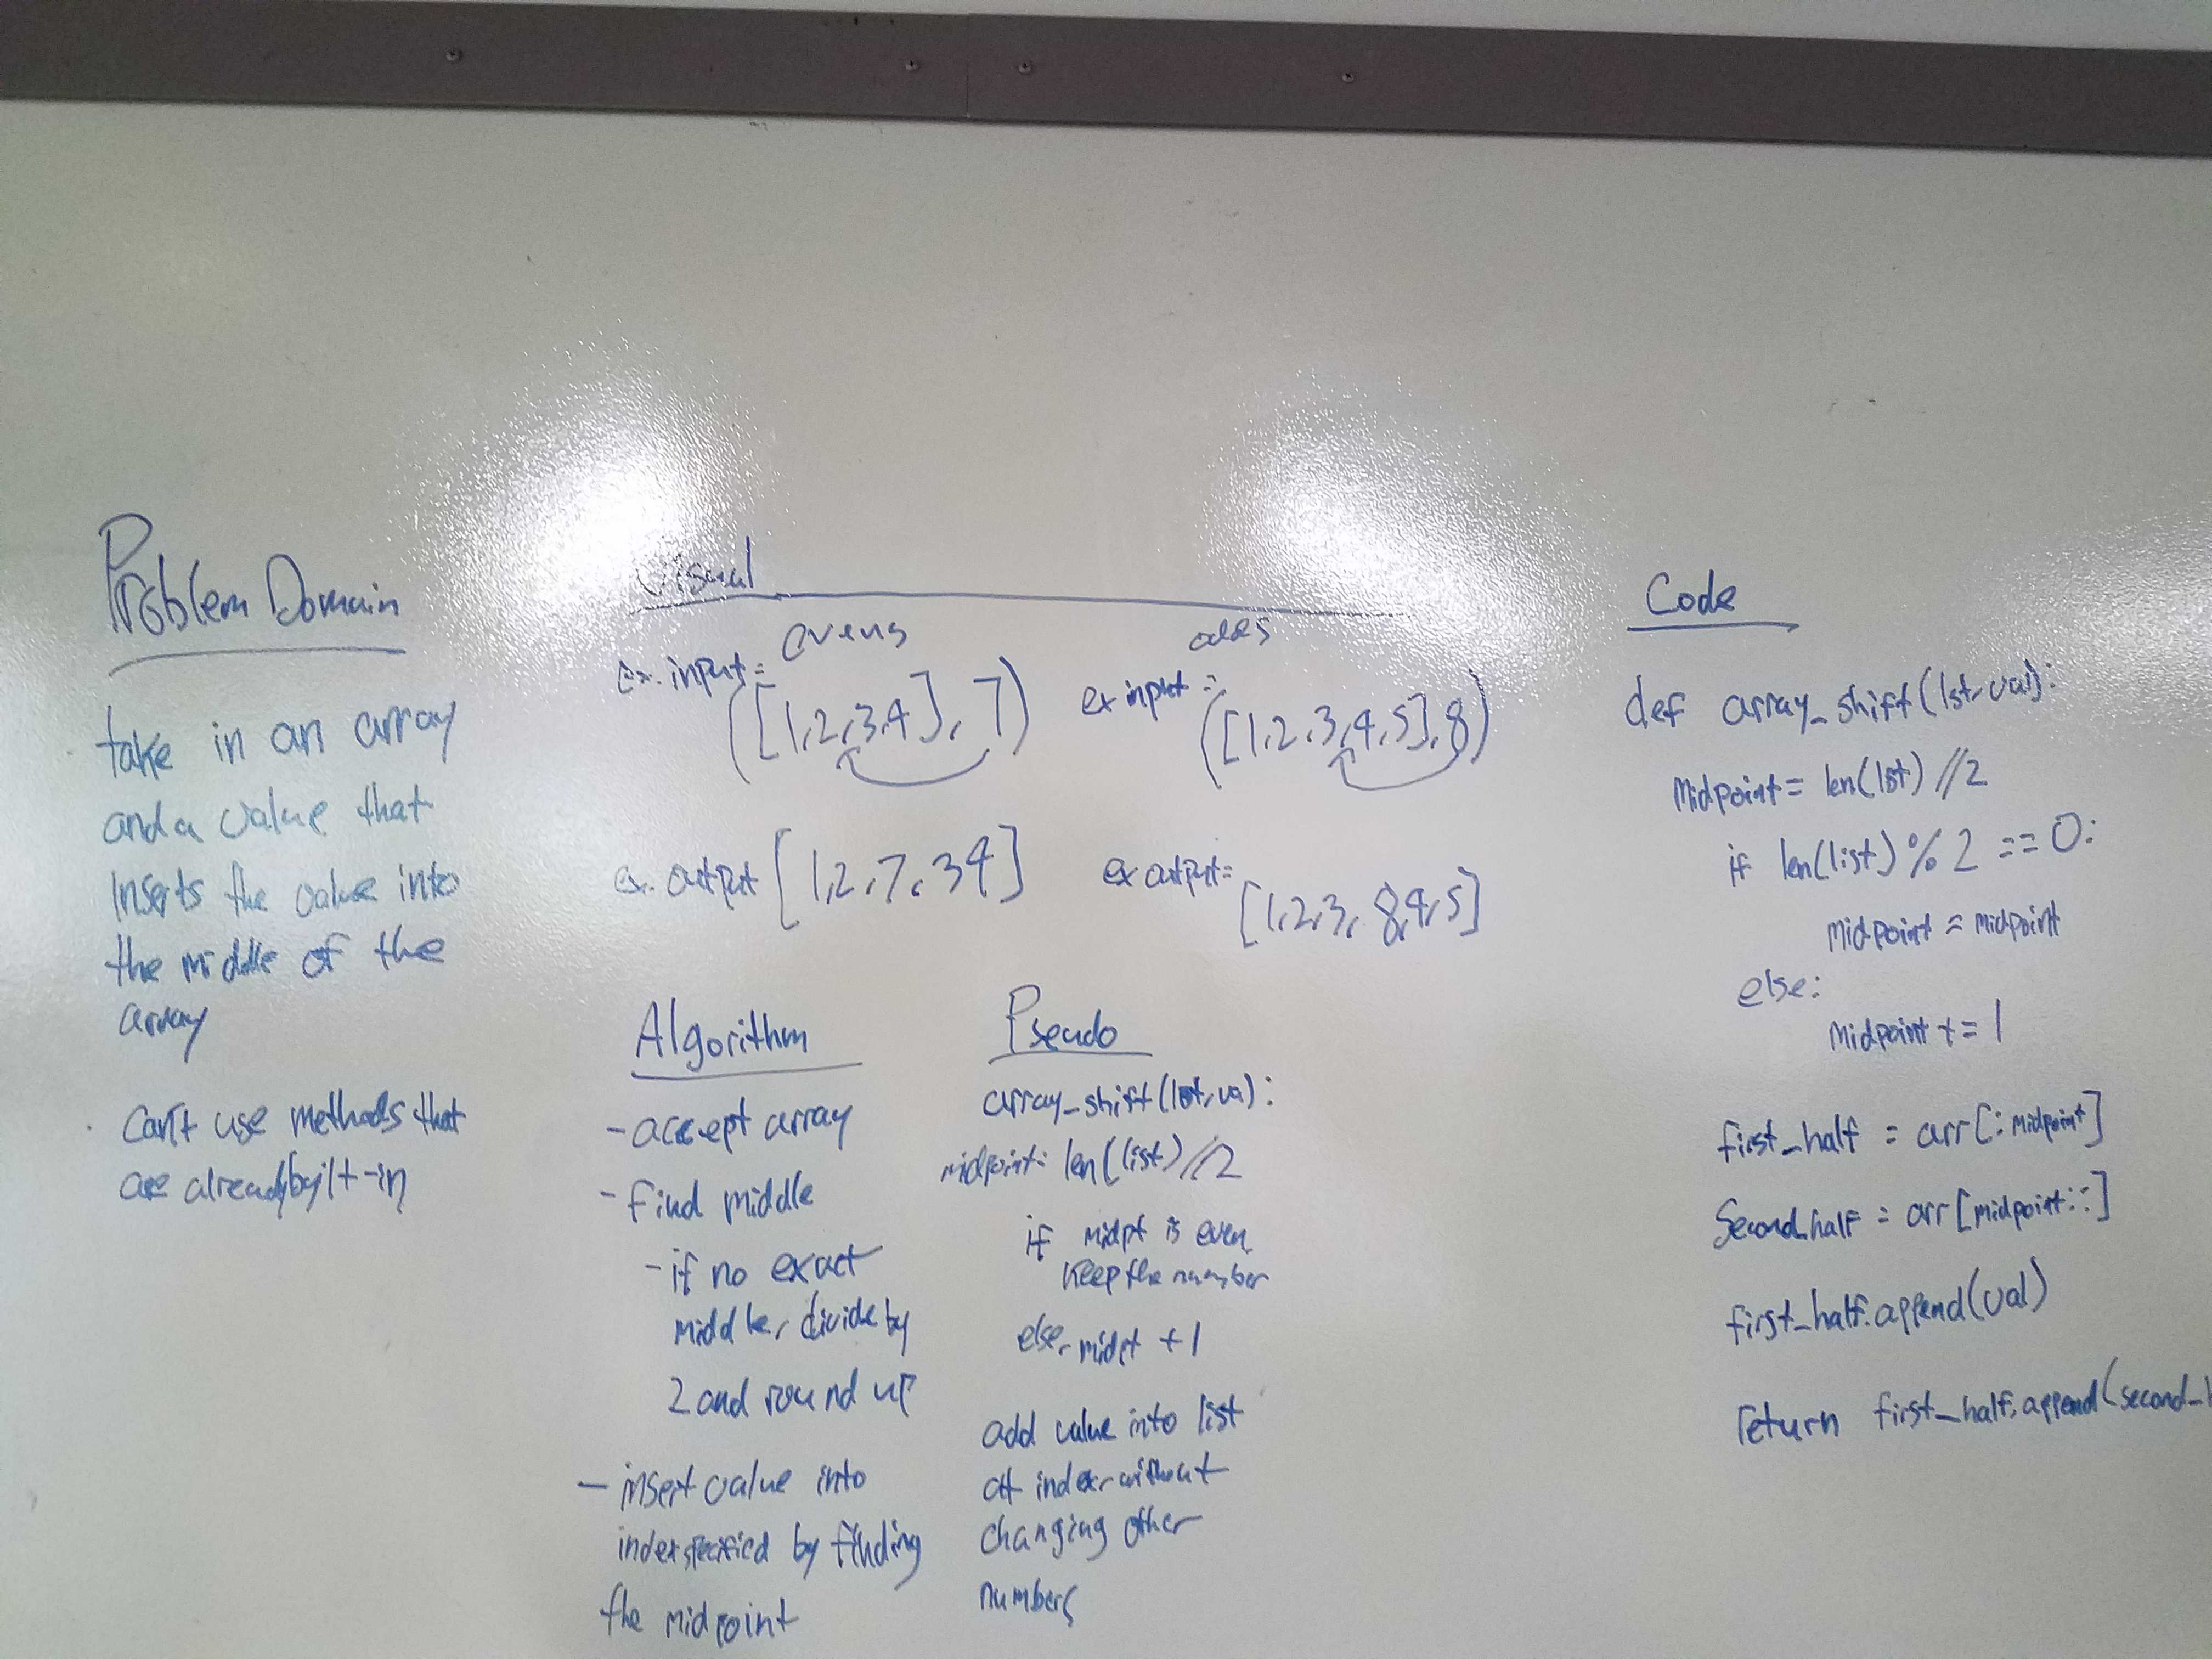 Problem Domain
take in an array
and a value that
inserts the value into
the middle of the
array
can't use methods that
are already built-in
Visual
evens
ex. input =
([1,2,3,4], 7)
ex. output [1,2,7,3 4]
odds
ex input =
([1,2,3,4,5],8)
ex output =
[1,2,3, 8,4,5]
Algorithm
- accept array
- find middle
- if no exact
middle, divide by
2 and round up
- insert value into
index specified by finding
the midpoint
Pseudo
array_shift(lst, va):
midpoint: len(list)//2
if midpt is even,
keep the number
else, midpt +1
add value into list
at index without
changing other
numbers
Code
def array_shift(lst, val):
midpoint = len(lst) //2
if len(list) % 2 == 0:
midpoint = midpoint
else:
midpoint += 1
first_half = arr[:midpoint]
Second_half = arr[midpoint::]
first_half.append(val)
return first_half.append(second_h